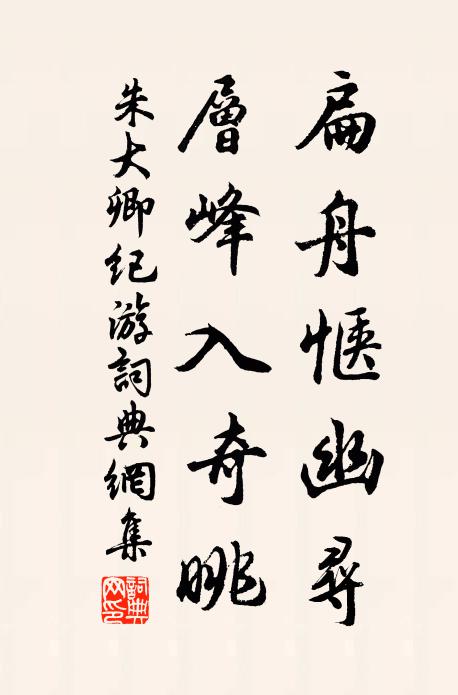 扁舟惬幽尋
層峰入奇眺
朱大卿紀游詞典網集
詞典网印